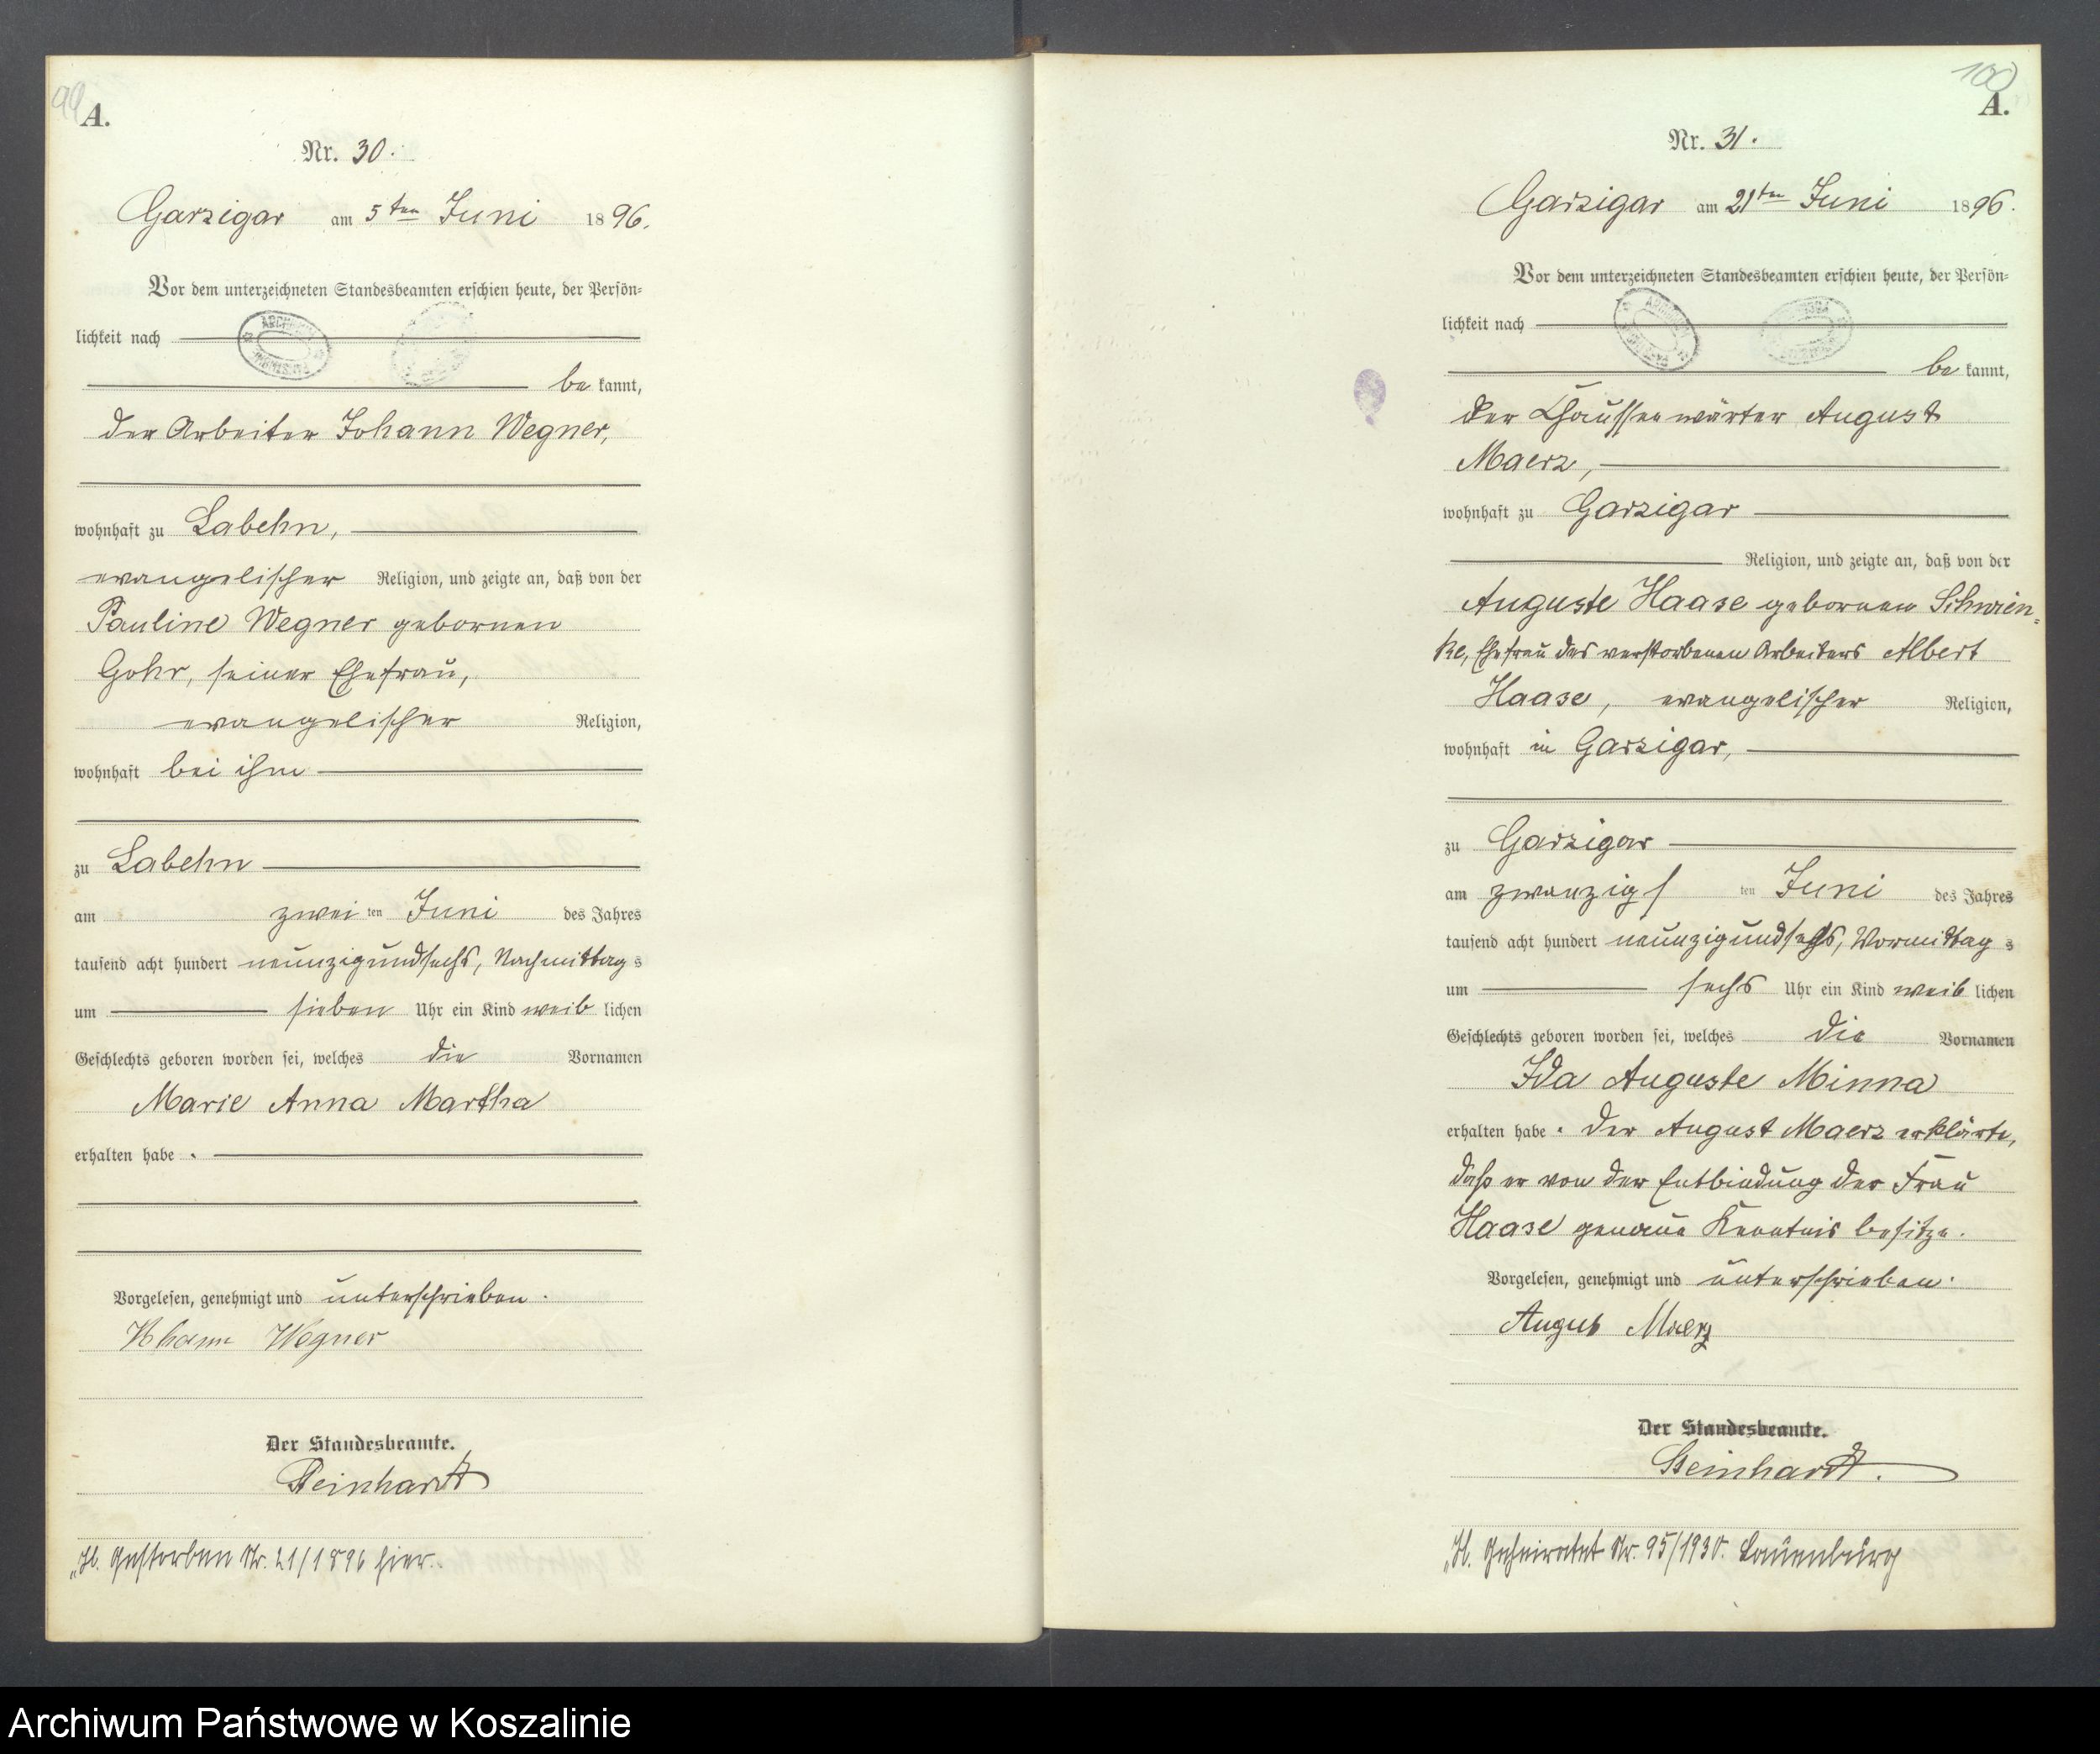 99
A.
Nr. 30.
Garzigar am 5ten Juni 1896.
Vor dem unterzeichneten Standesbeamten erschien heute, der Persön-
lichkeit nach
be kannt,
der Arbeiter Johann Wegner,
wohnhaft zu Labehn,
evangelischer Religion, und zeigte an, daß von der
Pauline Wegner gebornen
Gohr, seiner Ehefrau,
evangelischer Religion,
wohnhaft bei ihm
zu Labehn
am zwei ten Juni des Jahres
tausend acht hundert neunzigundsechs, Nachmittag s
um sieben Uhr ein Kind weib lichen
Geschlechts geboren worden sei, welches die Vornamen
Marie Anna Martha
erhalten habe .
Vorgelesen, genehmigt und unterschrieben.
Johann Wegner
Der Standesbeamte.
Reinhardt
„H. Gestorben Nr. 21/1896 hier.
100
A.
Nr. 31.
Garzigar am 21ten Juni 1896.
Vor dem unterzeichneten Standesbeamten erschien heute, der Persön-
lichkeit nach
be kannt,
der Chaussenwärter August
Maerz,
wohnhaft zu Garzigar
Religion, und zeigte an, daß von der
Auguste Haase gebornen Schwen-
ke, Ehefrau des verstorbenen Arbeiters Albert
Haase, evangelischer Religion,
wohnhaft in Garzigar,
zu Garzigar
am zwanzigs ten Juni des Jahres
tausend acht hundert neunzigundsechs, Vormittag s
um sechs Uhr ein Kind weib lichen
Geschlechts geboren worden sei, welches die Vornamen
Ida Auguste Minna
erhalten habe . Der August Maerz erklärte,
daß er von der Entbindung der Frau
Haase genaue Kenntnis besitze.
Vorgelesen, genehmigt und unterschrieben.
August Maerz
Der Standesbeamte.
Reinhardt.
„H. Geheiratet Nr. 95/1930. Lauenburg
Archiwum Państwowe w Koszalinie